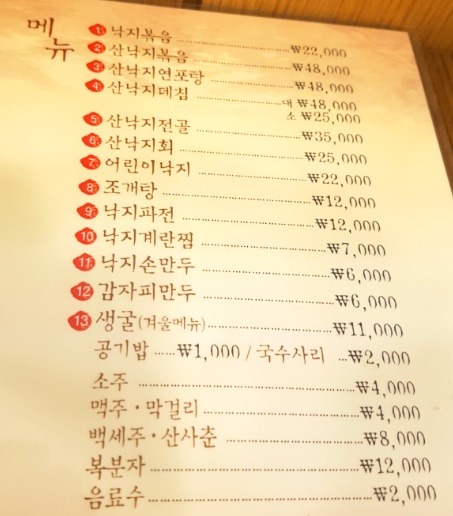 메뉴
1 낙지볶음 ₩22,000
2 산낙지볶음 ₩48,000
3 산낙지연포탕 ₩48,000
4 산낙지데침 대 ₩48,000
소 ₩25,000
5 산낙지전골 ₩35,000
6 산낙지회 ₩25,000
7 어린이낙지 ₩22,000
8 조개탕 ₩12,000
9 낙지파전 ₩12,000
10 낙지계란찜 ₩7,000
11 낙지손만두 ₩6,000
12 감자피만두 ₩6,000
13 생굴(겨울메뉴) ₩11,000
공기밥 ₩1,000 / 국수사리 ₩2,000
소주 ₩4,000
맥주·막걸리 ₩4,000
백세주·산사춘 ₩8,000
복분자 ₩12,000
음료수 ₩2,000